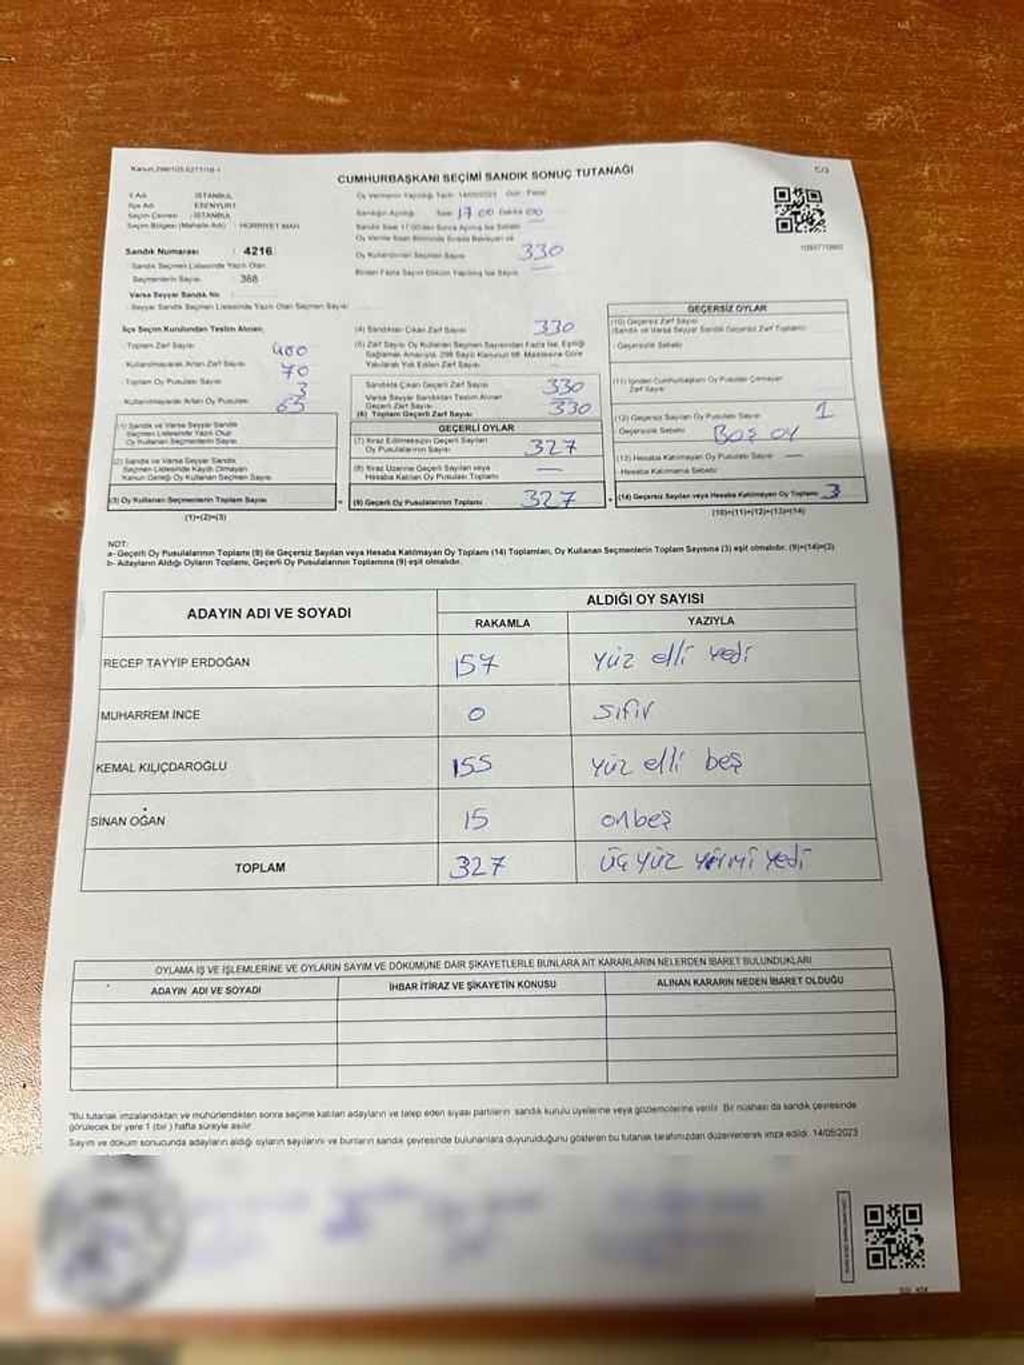 CUMHURBAŞKANI SEÇİMİ SANDIK SONUÇ TUTANAĞI
İl Adı : İSTANBUL
İlçe Adı : ESENYURT
Seçim Çevresi : İSTANBUL
Seçim Bölgesi (Mahalle Adı) : HÜRRİYET MAH
Sandık Numarası : 4216
Sandık Seçmen Listesinde Yazılı Olan
Seçmenlerin Sayısı 368
Varsa Seyyar Sandık No
Seyyar Sandık Seçmen Listesinde Yazılı Olan Seçmen Sayısı
Saat 17 00 Dakika 00
Oy Kullandırılan Seçmen Sayısı 330
Birden Fazla Sayım Döküm Yapılmış İse Sayısı
İlçe Seçim Kurulundan Teslim Alınan;
Toplam Zarf Sayısı 400
Kullanılmayarak Artan Zarf Sayısı 70
Toplam Oy Pusulası Sayısı
Kullanılmayarak Artan Oy Pusulası
(1) Sandık ve Varsa Seyyar Sandık
Seçmen Listesinde Yazılı Olup
Oy Kullanan Seçmenlerin Sayısı
(2) Sandık ve Varsa Seyyar Sandık
Seçmen Listesinde Kayıtlı Olmayan
Kanun Gereği Oy Kullanan Seçmen Sayısı
(3) Oy Kullanan Seçmenlerin Toplam Sayısı
(1)+(2)=(3)
(4) Sandıktan Çıkan Zarf Sayısı 330
(5) Zarf Sayısı Oy Kullanan Seçmen Sayısından Fazla İse, Eşitliği
Sağlamak Amacıyla, 298 Sayılı Kanunun 98. Maddesine Göre
Yakılarak Yok Edilen Zarf Sayısı
Sandıkta Çıkan Geçerli Zarf Sayısı 330
Varsa Seyyar Sandıktan Teslim Alınan
Geçerli Zarf Sayısı
(6) Toplam Geçerli Zarf Sayısı 330
GEÇERLİ OYLAR
(7) İtiraz Edilmeksizin Geçerli Sayılan
Oy Pusulalarının Sayısı 327
(8) İtiraz Üzerine Geçerli Sayılan veya
Hesaba Katılan Oy Pusulası Toplamı —
= (9) Geçerli Oy Pusulalarının Toplamı 327
GEÇERSİZ OYLAR
(10) Geçersiz Zarf Sayısı
(Sandık ve Varsa Seyyar Sandık Geçersiz Zarf Toplamı)
Geçersizlik Sebebi
(11) İçinden Cumhurbaşkanı Oy Pusulası Çıkmayan
Zarf Sayısı
(12) Geçersiz Sayılan Oy Pusulası Sayısı 1
Geçersizlik Sebebi Boş oy
(13) Hesaba Katılmayan Oy Pusulası Sayısı —
Hesaba Katılmama Sebebi
+ (14) Geçersiz Sayılan veya Hesaba Katılmayan Oy Toplamı 3
(10)+(11)+(12)+(13)=(14)
NOT:
a- Geçerli Oy Pusulalarının Toplamı (9) ile Geçersiz Sayılan veya Hesaba Katılmayan Oy Toplamı (14) Toplamları, Oy Kullanan Seçmenlerin Toplam Sayısına (3) eşit olmalıdır. (9)+(14)=(3)
b- Adayların Aldığı Oyların Toplamı, Geçerli Oy Pusulalarının Toplamına (9) eşit olmalıdır.
ADAYIN ADI VE SOYADI
ALDIĞI OY SAYISI
RAKAMLA YAZIYLA
RECEP TAYYİP ERDOĞAN 157 yüz elli yedi
MUHARREM İNCE 0 sıfır
KEMAL KILIÇDAROĞLU 155 yüz elli beş
SİNAN OĞAN 15 onbeş
TOPLAM 327 üç yüz yirmi yedi
OYLAMA İŞ VE İŞLEMLERİNE VE OYLARIN SAYIM VE DÖKÜMÜNE DAİR ŞİKAYETLERLE BUNLARA AİT KARARLARIN NELERDEN İBARET BULUNDUKLARI
ADAYIN ADI VE SOYADI İHBAR İTİRAZ VE ŞİKAYETİN KONUSU ALINAN KARARIN NEDEN İBARET OLDUĞU
"Bu tutanak imzalandıktan ve mühürlendikten sonra seçime katılan adayların ve talep eden siyasi partilerin sandık kurulu üyelerine veya gözlemcilerine verilir. Bir nüshası da sandık çevresinde
görülecek bir yere 1 (bir) hafta süreyle asılır.
Sayım ve döküm sonucunda adayların aldığı oyların sayılarını ve bunların sandık çevresinde bulunanlara duyurulduğunu gösteren bu tutanak tarafımızdan düzenlenerek imza edildi. 14/05/2023